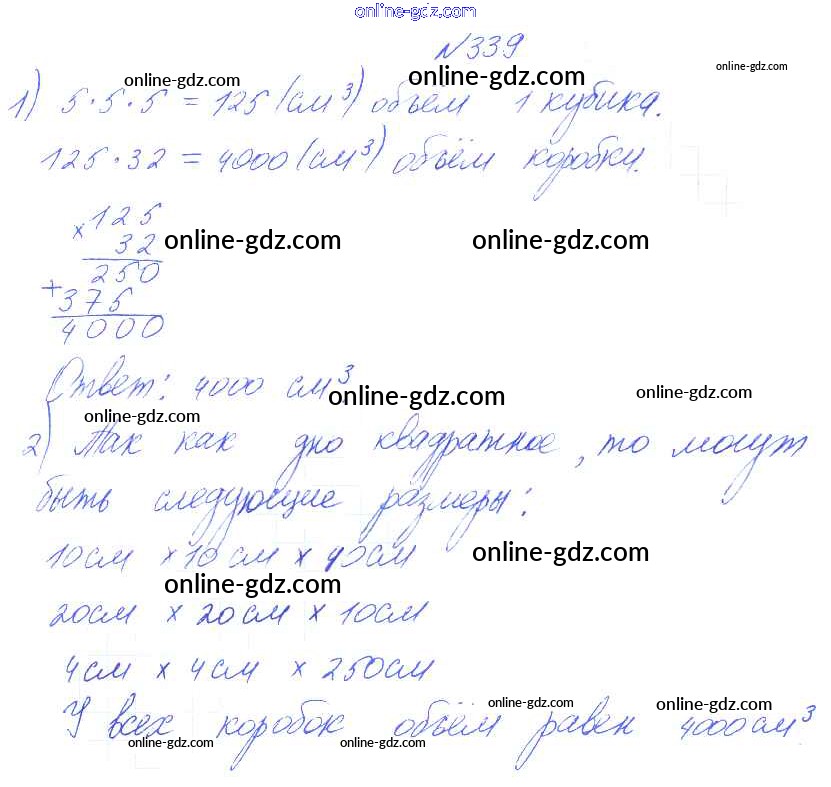 online-gdz.com
№339
online-gdz.com online-gdz.com online-gdz.com
1) 5·5·5 = 125 (см³) объём 1 кубика.
125·32 = 4000 (см³) объём коробки.
×125
32
online-gdz.com online-gdz.com
250
+375
4000
Ответ: 4000 см³
online-gdz.com online-gdz.com
online-gdz.com
2) Так как дно квадратное, то могут
быть следующие размеры:
10см × 10см × 40см
online-gdz.com
online-gdz.com
20см × 20см × 10см
4см × 4см × 250см
online-gdz.com online-gdz.com
У всех коробок объём равен 4000см³
online-gdz.com online-gdz.com